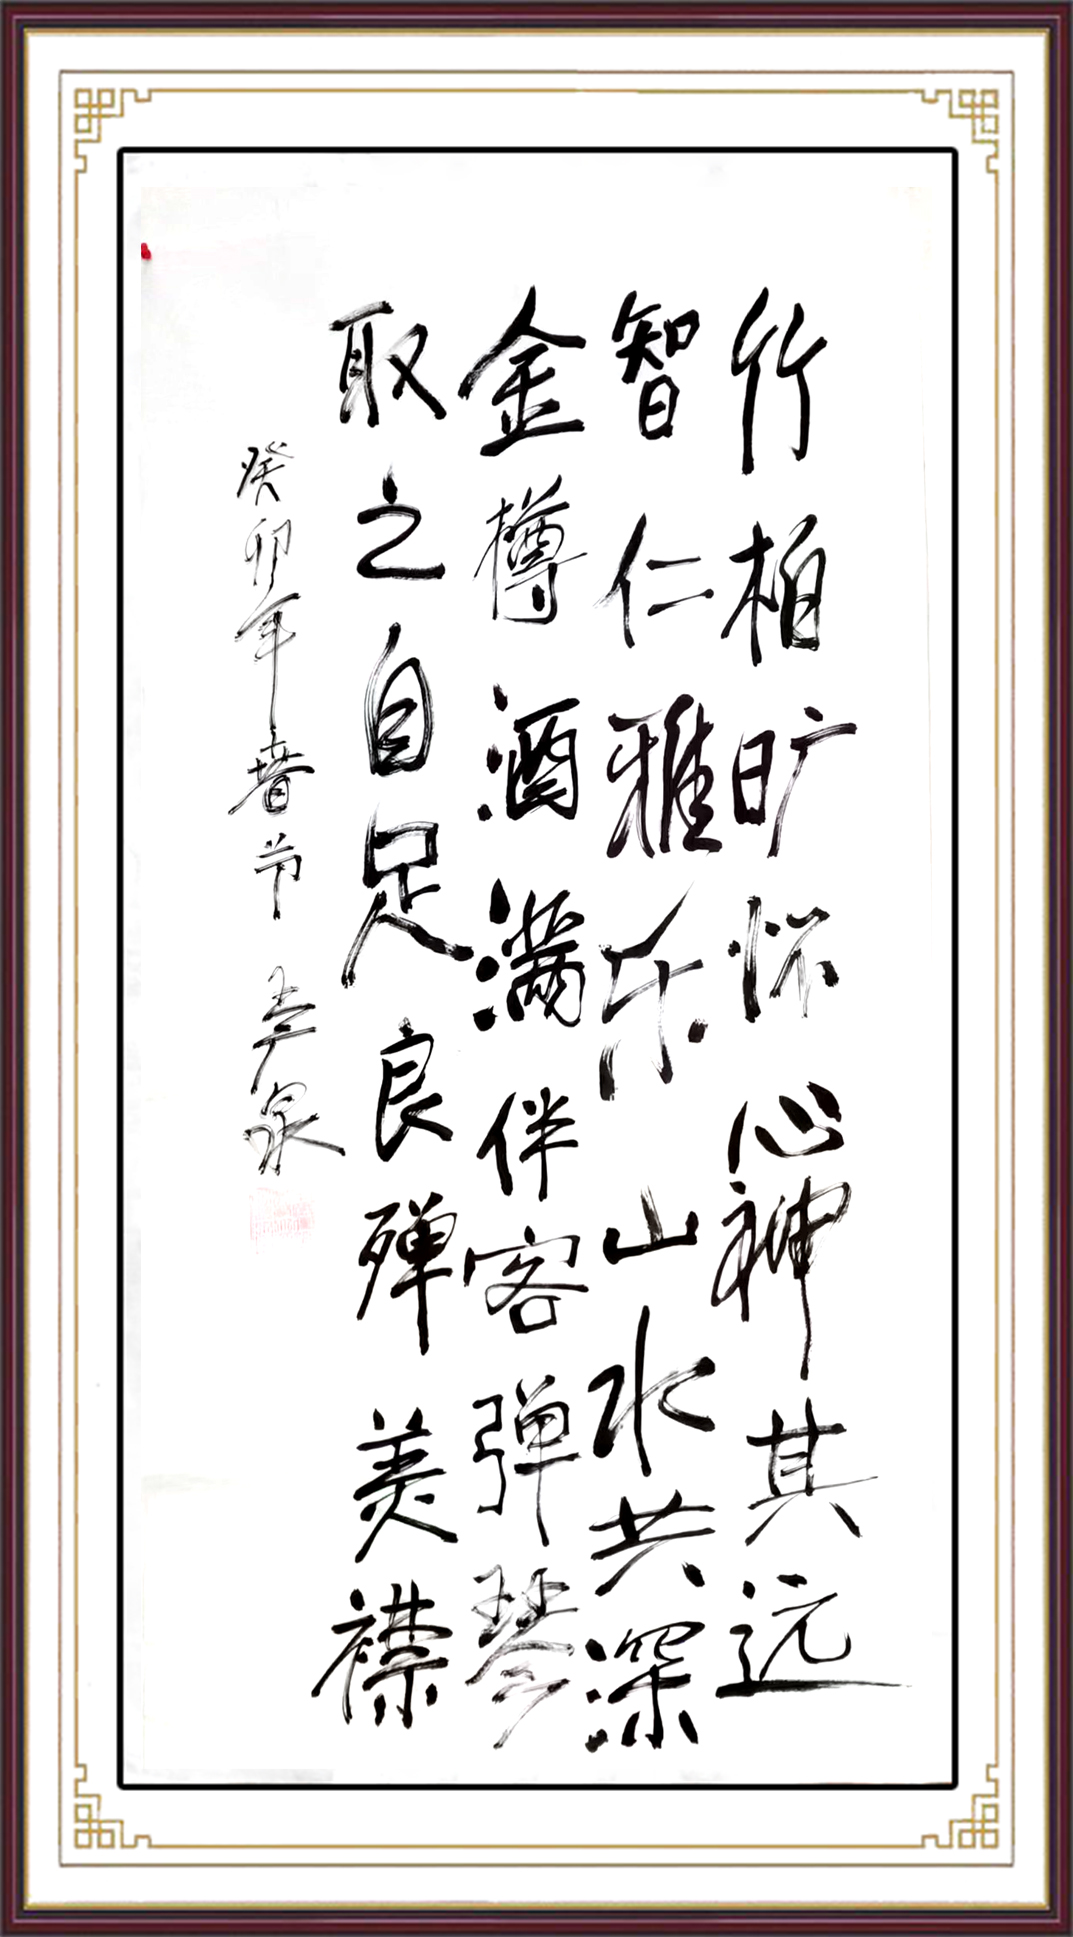 竹柏旷怀心神其远
智仁雅乐山水共深
金樽酒满伴客弹琴
取之自足良殫美襟
癸卯年春节 李泉